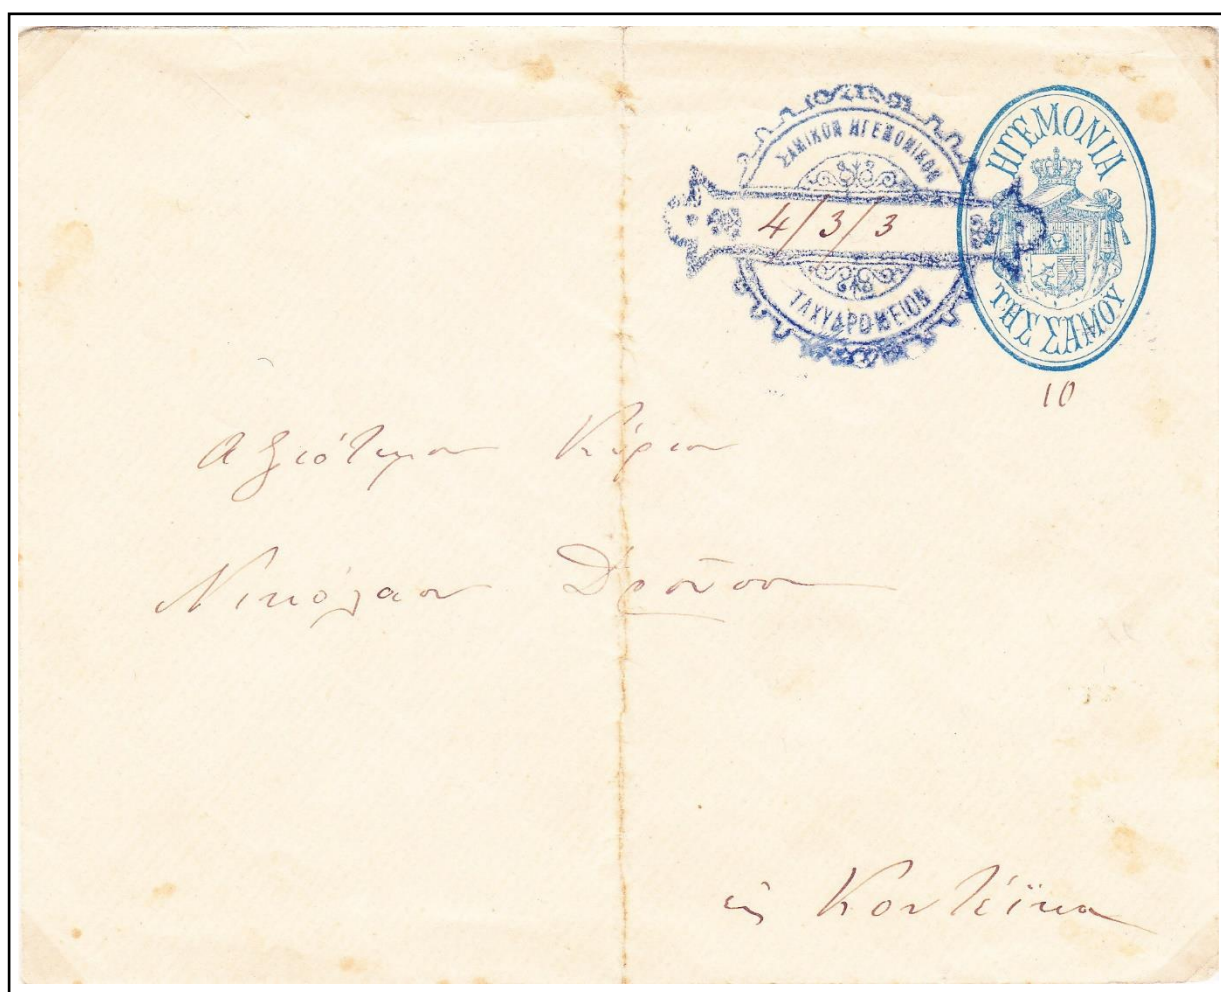 ΣΑΜΙΚΟΝ ΗΓΕΜΟΝΙΚΟΝ
4/3/3
ΤΑΧΥΔΡΟΜΕΙΟΝ
ΗΓΕΜΟΝΙΑ
ΤΗΣ ΣΑΜΟΥ
10
Αξιότιμον Κύριον
Νικόλαον Δροῦσον
εἰς Κοντέϊκα